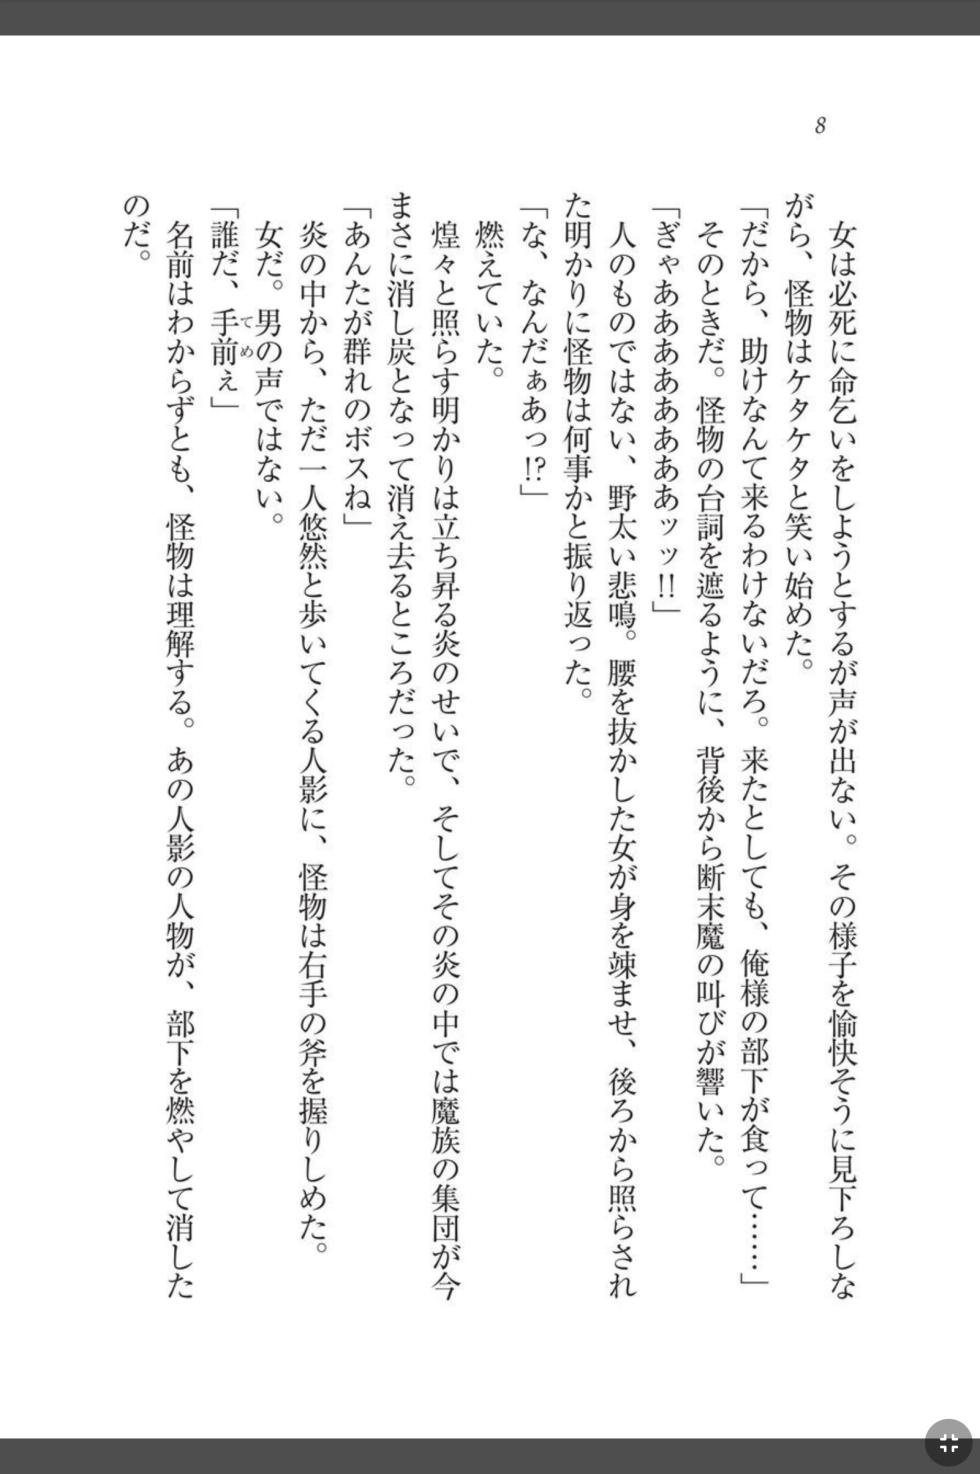 8
女は必死に命乞いをしようとするが声が出ない。その様子を愉快そうに見下ろしな
がら、怪物はケタケタと笑い始めた。
「だから、助けなんて来るわけないだろ。来たとしても、俺様の部下が食って……」
そのときだ。怪物の台詞を遮るように、背後から断末魔の叫びが響いた。
「ぎゃああああああああッッ!!」
人のものではない、野太い悲鳴。腰を抜かした女が身を竦ませ、後ろから照らされ
た明かりに怪物は何事かと振り返った。
「な、なんだぁあっ!?」
燃えていた。
煌々と照らす明かりは立ち昇る炎のせいで、そしてその炎の中では魔族の集団が今
まさに消し炭となって消え去るところだった。
「あんたが群れのボスね」
炎の中から、ただ一人悠然と歩いてくる人影に、怪物は右手の斧を握りしめた。
女だ。男の声ではない。
「誰だ、手前ぇ」
てめ
名前はわからずとも、怪物は理解する。あの人影の人物が、部下を燃やして消した
のだ。